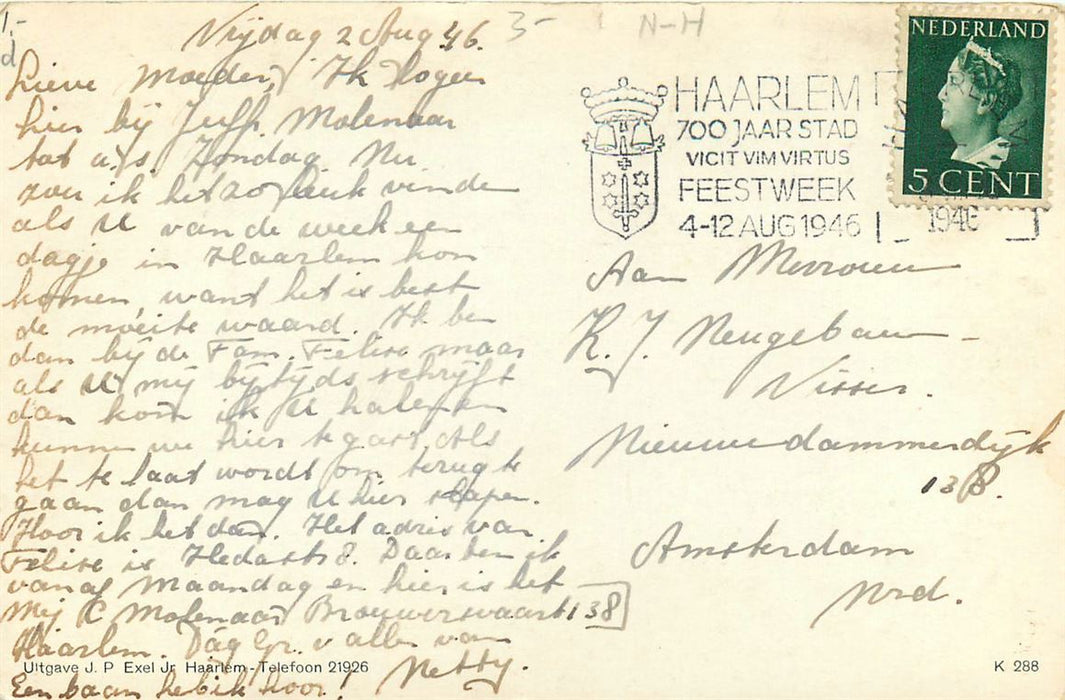 1-
d
3-
N-H
Vrijdag 2 Aug 46.
Lieve Moeder, Ik logeer
hier bij Juffr. Molenaar
tot a.s. Zondag Nu
zou ik het zo leuk vinden
als U van de week een
dagje in Haarlem kon
komen, want het is best
de moeite waard. Ik ben
dan bij de Fam. Felise maar
als U mij bijtijds schrijft
dan kom ik U halen en
kunnen we hier te gast. Als
het te laat wordt om terug te
gaan dan mag U hier slapen.
Hoor ik het dan. Het adres van
Felise is Hedastr 8. Daar ben ik
vanaf Maandag en hier is het
Mej C Molenaar Brouwersvaart 138
Haarlem. Dag Gr. v allen van
Netty.
Een baan heb ik hoor!
Uitgave J. P Exel Jr Haarlem - Telefoon 21926
HAARLEM
700 JAAR STAD
VICIT VIM VIRTUS
FEESTWEEK
4-12 AUG 1946
1946
NEDERLAND
5 CENT
Aan Mevrouw
K. J. Neugebauer-
Visser.
Nieuwendammerdijk
138.
Amsterdam
Nrd.
K 288